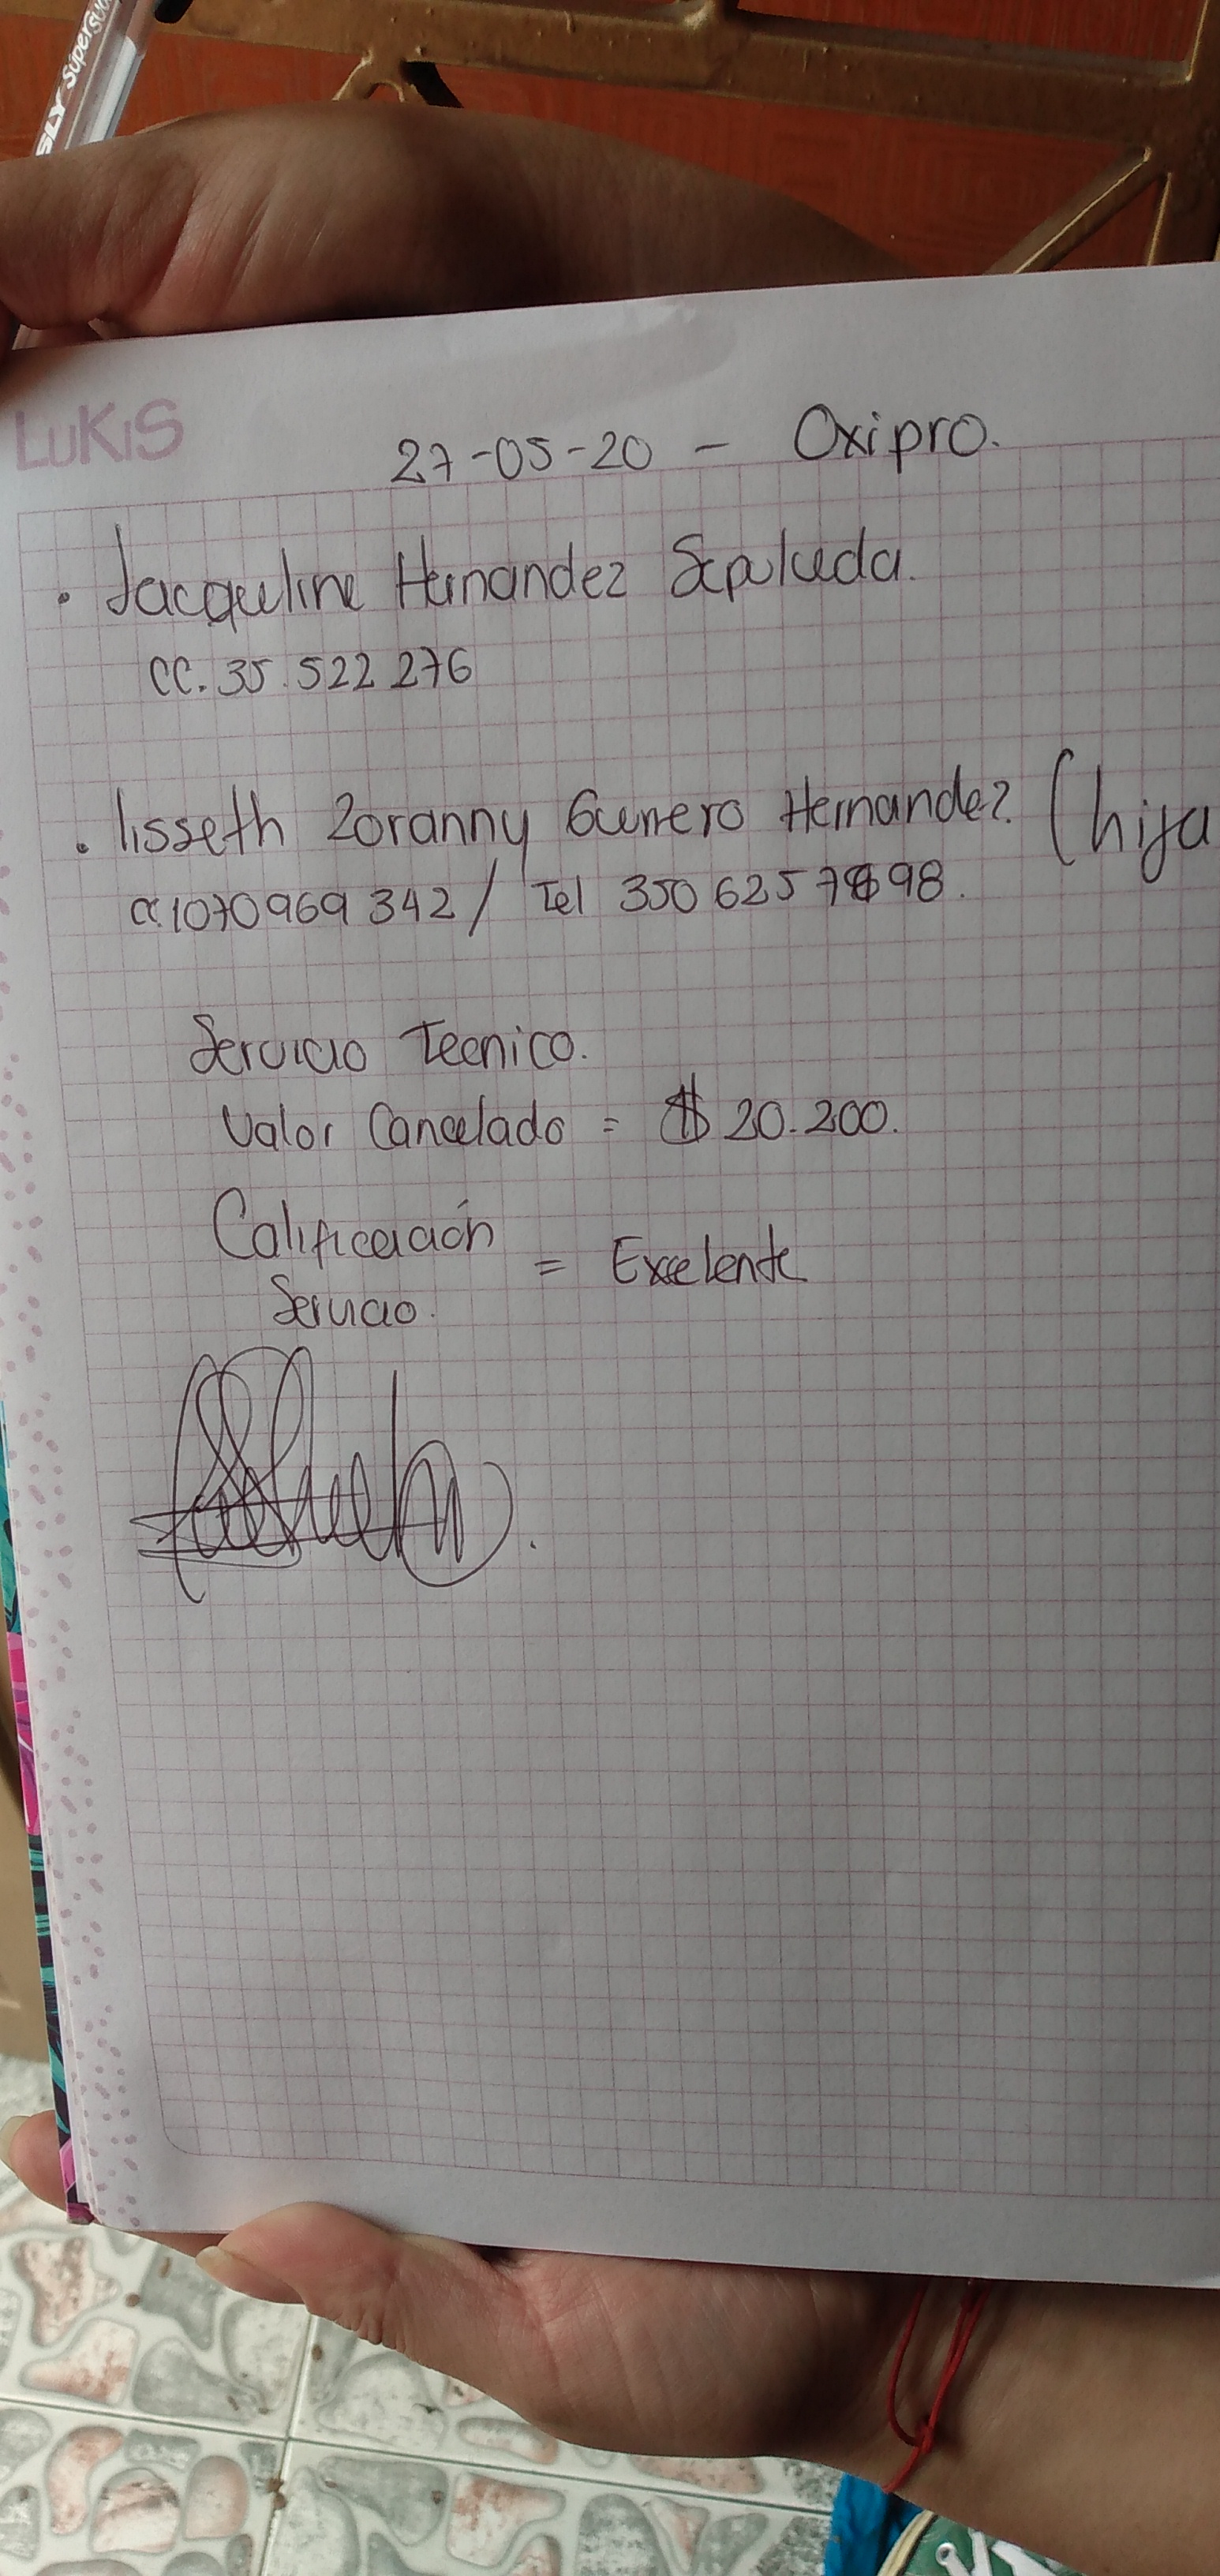 SLY Super
LUKIS
27-05-20 - Oxipro.
• Jacqueline Hernandez Sepulveda.
CC. 35.522 276
• lisseth Zoranny Guerrero Hernandez. (hija
cc.1070969 342 / Tel 350 625 7 98.
Servicio Tecnico.
Valor Cancelado = $ 20.200.
Calificación
= Excelente
Servicio.